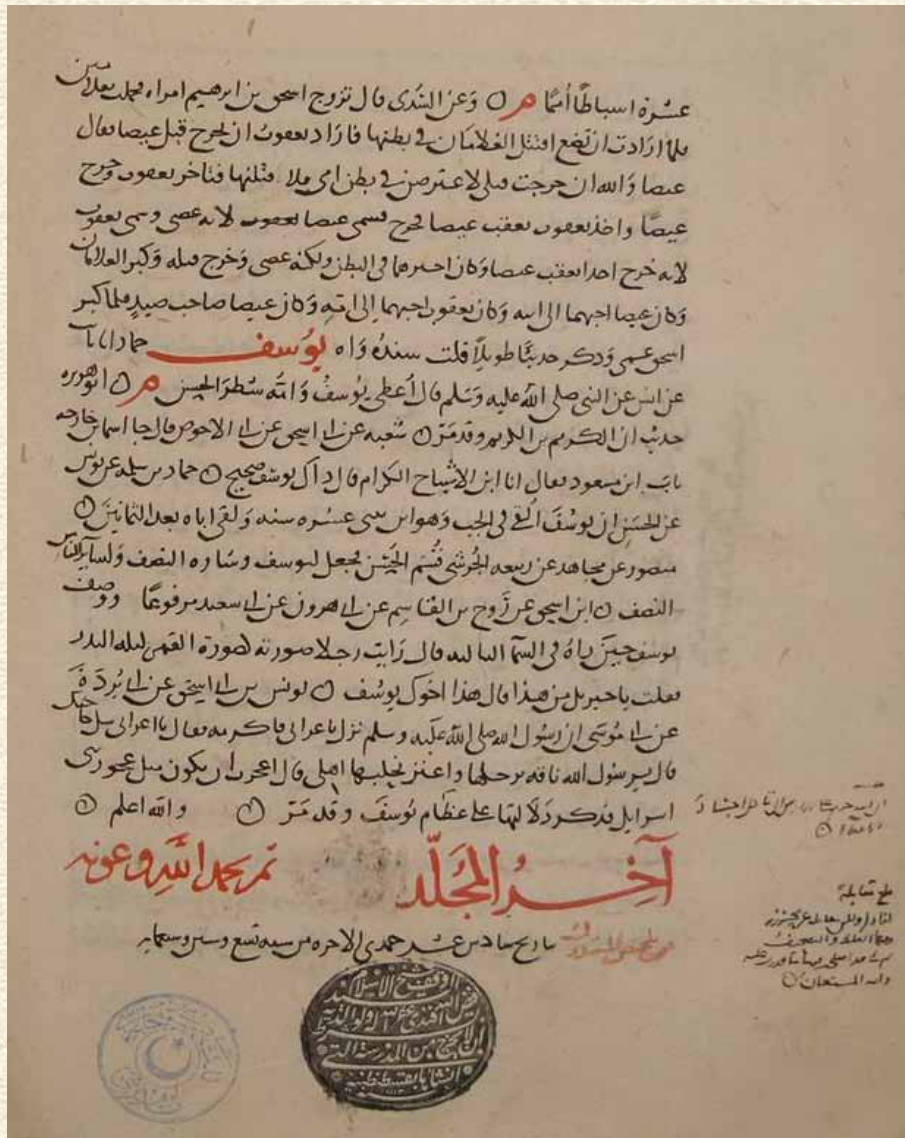 عشرة اسباطًا أممًا م ۞ وَعن السُّدى قال تزوج اسحق بن ابرهيم امراه فحملت بغلامين
فلما ارادت ان تضع اقتتل الغلامان في بطنها فاراد يعقوب ان يخرج قبل عيصا فقال
عيصا وَالله ان خرجت قبلى لاعترضن في بطن امى ولا قتلنها فتاخر يعقوب وخرج
عيصًا واخذ يعقوب بعقب عيصا فخرج فسمى عيصا لانه عصى وسمى يعقوب
لانه خرج اخذا بعقب عيصا وَكان اكبرهما في البطن ولكنه عصى وَخرج قبله وَكبر الغلامان
وَكان عيصا احبهما الى ابيه وَكان يعقوب احبهما الى امّه وَكان عيصا صاحب صيدٍ فلما كبر
اسحق عمى وَذكر حديثًا طويلًا قلت سندهُ وَاه يوُسف حماد انا ثابت
عن انس عن النبي صلى الله عليه وَسَلم قال اُعطى يوُسفُ وَامّه شطر الحسن م ۞ ابوهريره
حديث ان الكريم بن الكريم وقد مَرّ ۞ شعبه عن ابي اسحق عن ابي الاحوص قال جا اسما بن خارجه
باب ابن مسعود فقال انا ابن الاشياخ الكرام قال ذاك يوسف صحيح ۞ حماد بن سلمه عن يونس
عن الحسَن ان يوسُفَ اُلقى في الجب وَهو ابن عشره سنه وَلقى اباه بعد الثمانين ۞
منصور عن مجاهد عن ربيعه الجُرشى قُسم الحسُن فجعل ليوسف وسَاره النصف ولسائر الناس
النصف ۞ ابن اسحق عن رَوح بن القاسِم عن ابي هرون عن ابي سعيد مرفوعًا ووصف
يوسف حينَ راهُ في السمآ الثالثه قال رَايت رجلا صورته كصورة القمر ليله البدر
فقلت يا جبريل من هذا قال هذا اخوك يوسُف ۞ يونس بن ابي اسحق عن ابي بُردَةَ
عن ابي مُوسَى ان رسوُل الله صلى الله عليه وسلم نزل باعرابى فاكرمه فقال يا اعرابى سل حاجتك
قال يا رسوُل الله ناقه برحلها واعنز يحلبها اهلى قال اعجزت ان يكون مثل عجوز بنى
اسرايل فذكر دَلالتها على عظام يوُسفَ وَقد مَرّ ۞ وَالله اعلم ۞
آخِرُ المجَلّد تم بحمد اللهِ وعونه
تاريخ سادس عشر جمدى الاخره من سنه تسع وستين وسبعمايه
بلغ مقابلة
والله المستعان ۞
وقف شيخ الاسلام السيد
فيض الله افندى
ان لا يخرج من المدرسة التى
انشاها بقسطنطينية